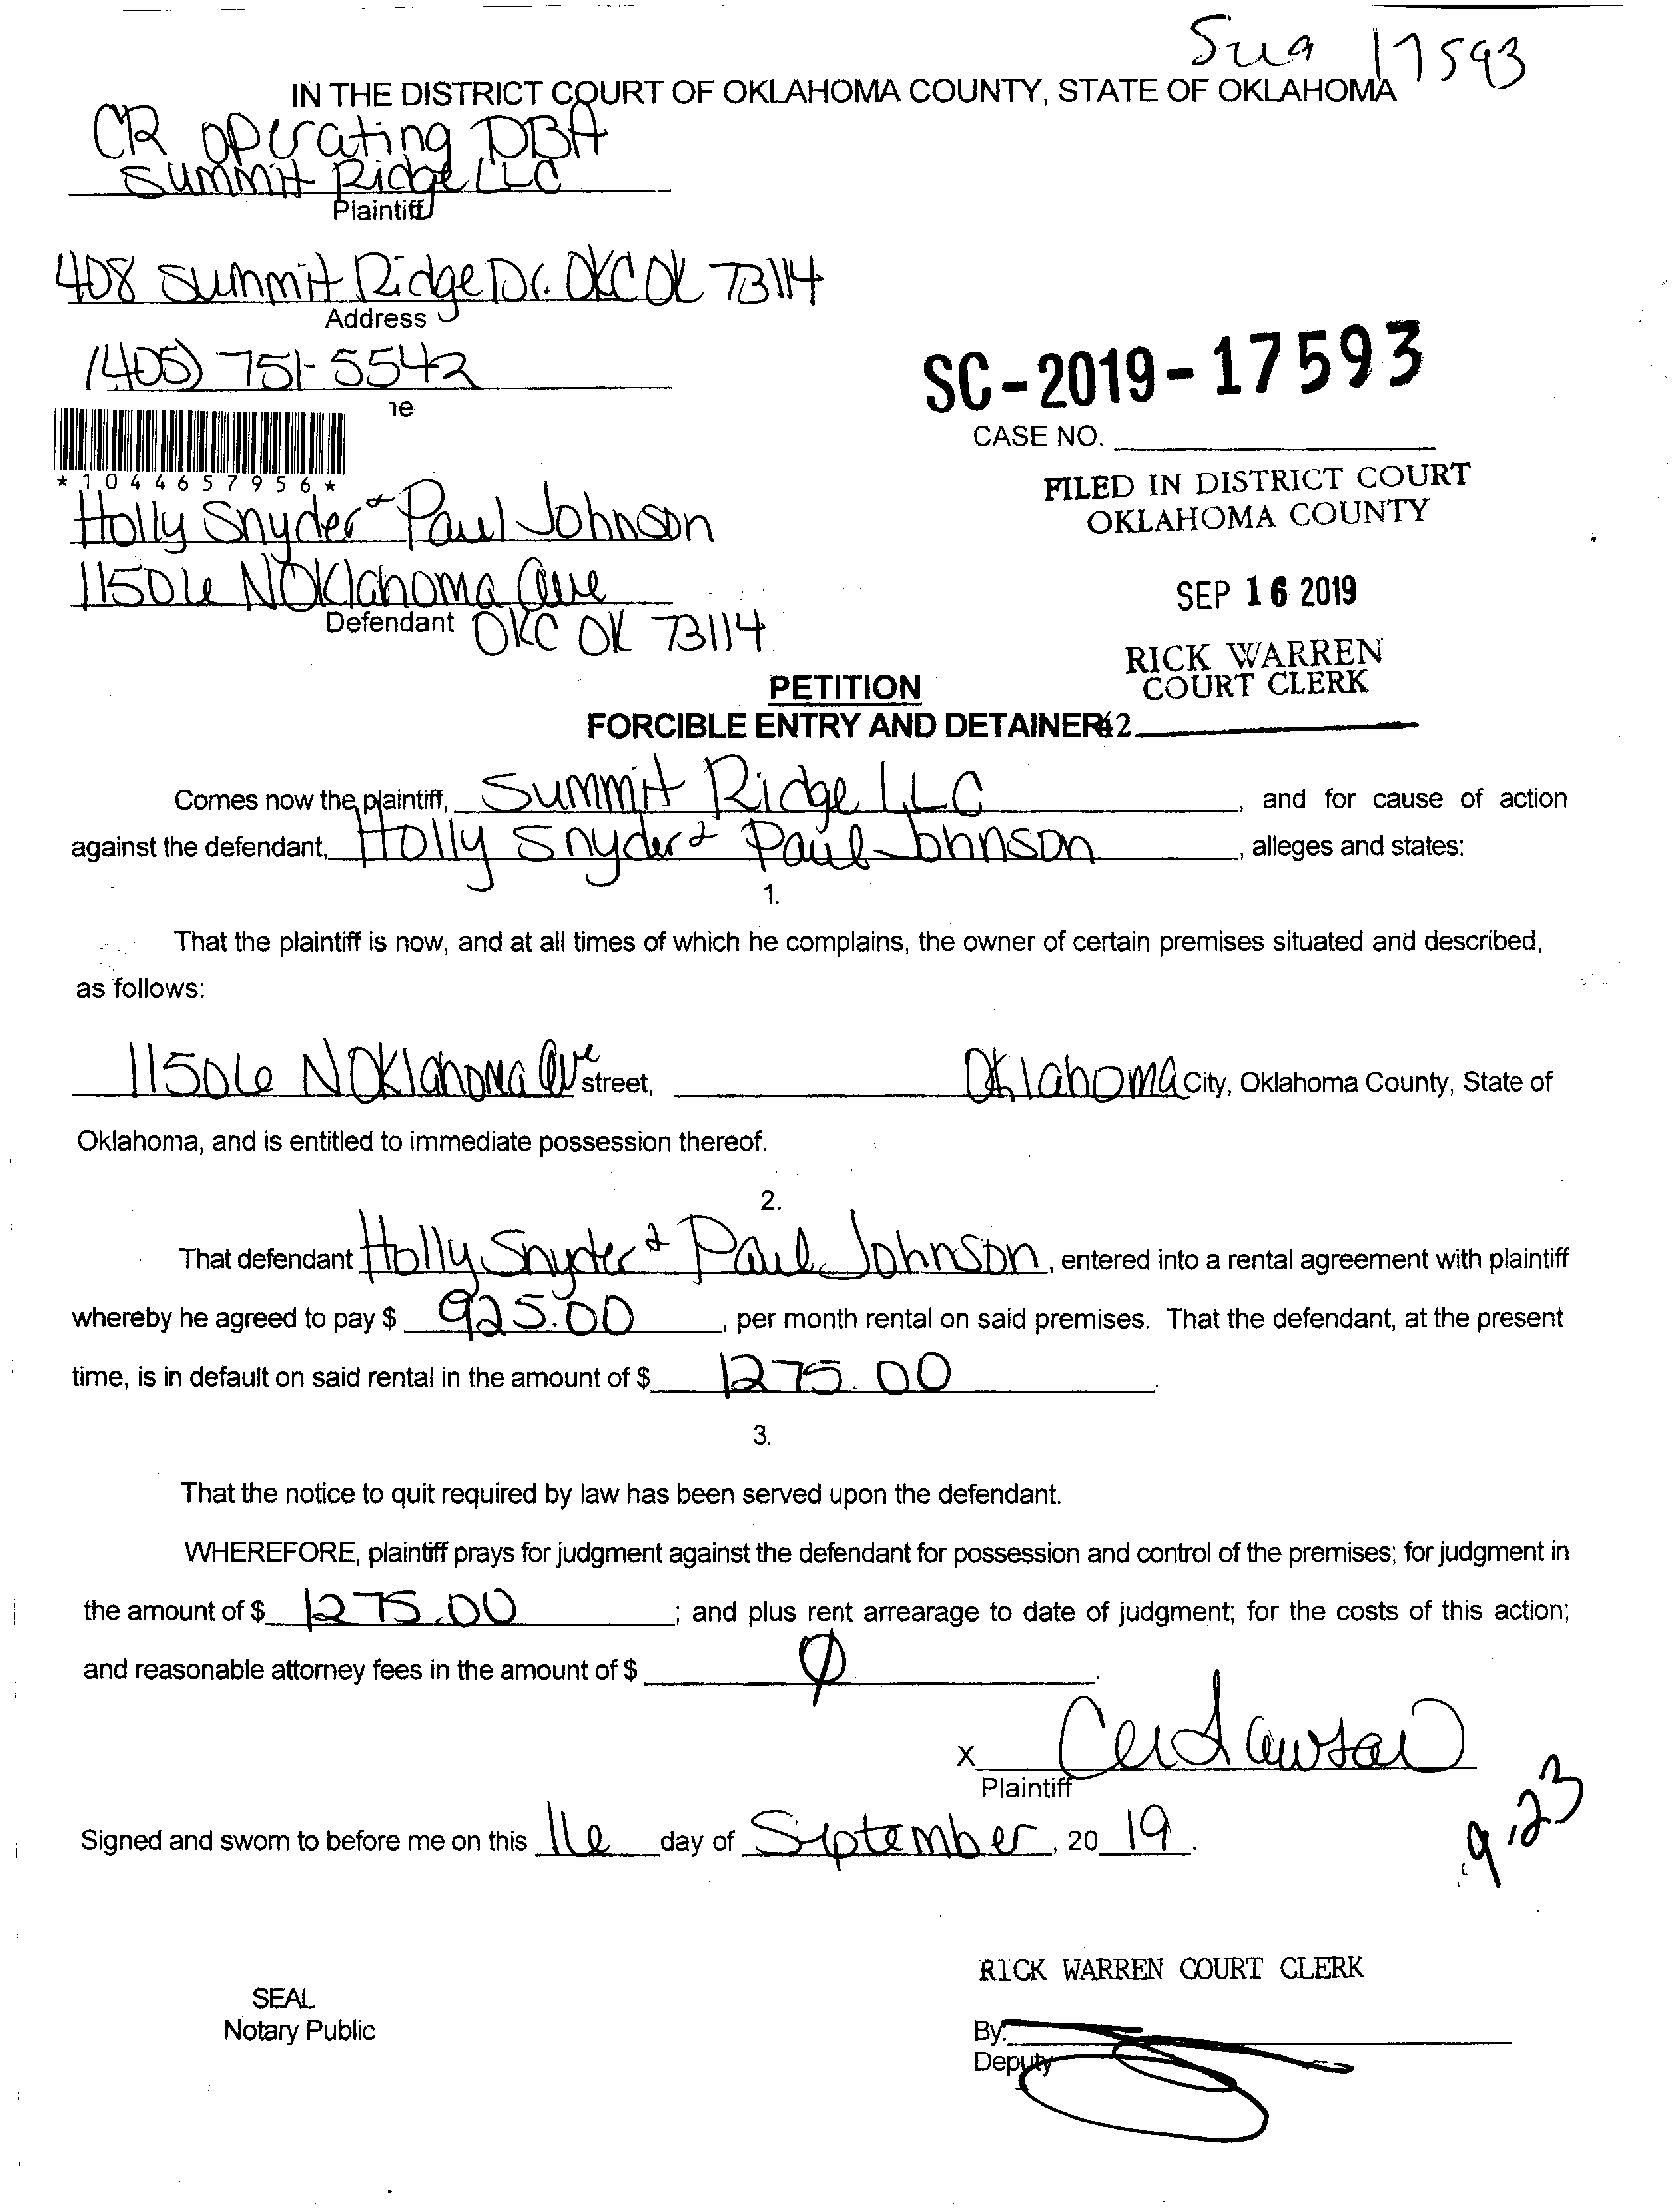 Sua 17593
IN THE DISTRICT COURT OF OKLAHOMA COUNTY, STATE OF OKLAHOMA
CR operating DBA
Summit Ridge LLC
Plaintiff
408 Summit Ridge Dr. OKC OK 73114
Address
(405) 751-5542
ne
SC-2019-17593
CASE NO.
*1044657956*
FILED IN DISTRICT COURT
OKLAHOMA COUNTY
Holly Snyder & Paul Johnson
11506 N Oklahoma Ave
SEP 16 2019
Defendant OKC OK 73114
RICK WARREN
COURT CLERK
PETITION
FORCIBLE ENTRY AND DETAINER 42
Comes now the plaintiff, Summit Ridge LLC, and for cause of action
against the defendant, Holly Snyder & Paul Johnson, alleges and states:
1.
That the plaintiff is now, and at all times of which he complains, the owner of certain premises situated and described,
as follows:
11506 N Oklahoma Ave street, Oklahoma City, Oklahoma County, State of
Oklahoma, and is entitled to immediate possession thereof.
2.
That defendant Holly Snyder & Paul Johnson, entered into a rental agreement with plaintiff
whereby he agreed to pay $ 925.00, per month rental on said premises. That the defendant, at the present
time, is in default on said rental in the amount of $ 1275.00.
3.
That the notice to quit required by law has been served upon the defendant.
WHEREFORE, plaintiff prays for judgment against the defendant for possession and control of the premises; for judgment in
the amount of $ 1275.00; and plus rent arrearage to date of judgment; for the costs of this action;
and reasonable attorney fees in the amount of $ Ø.
x
Plaintiff
9.23
Signed and sworn to before me on this 16 day of September, 20 19.
RICK WARREN COURT CLERK
SEAL
Notary Public
By:
Deputy